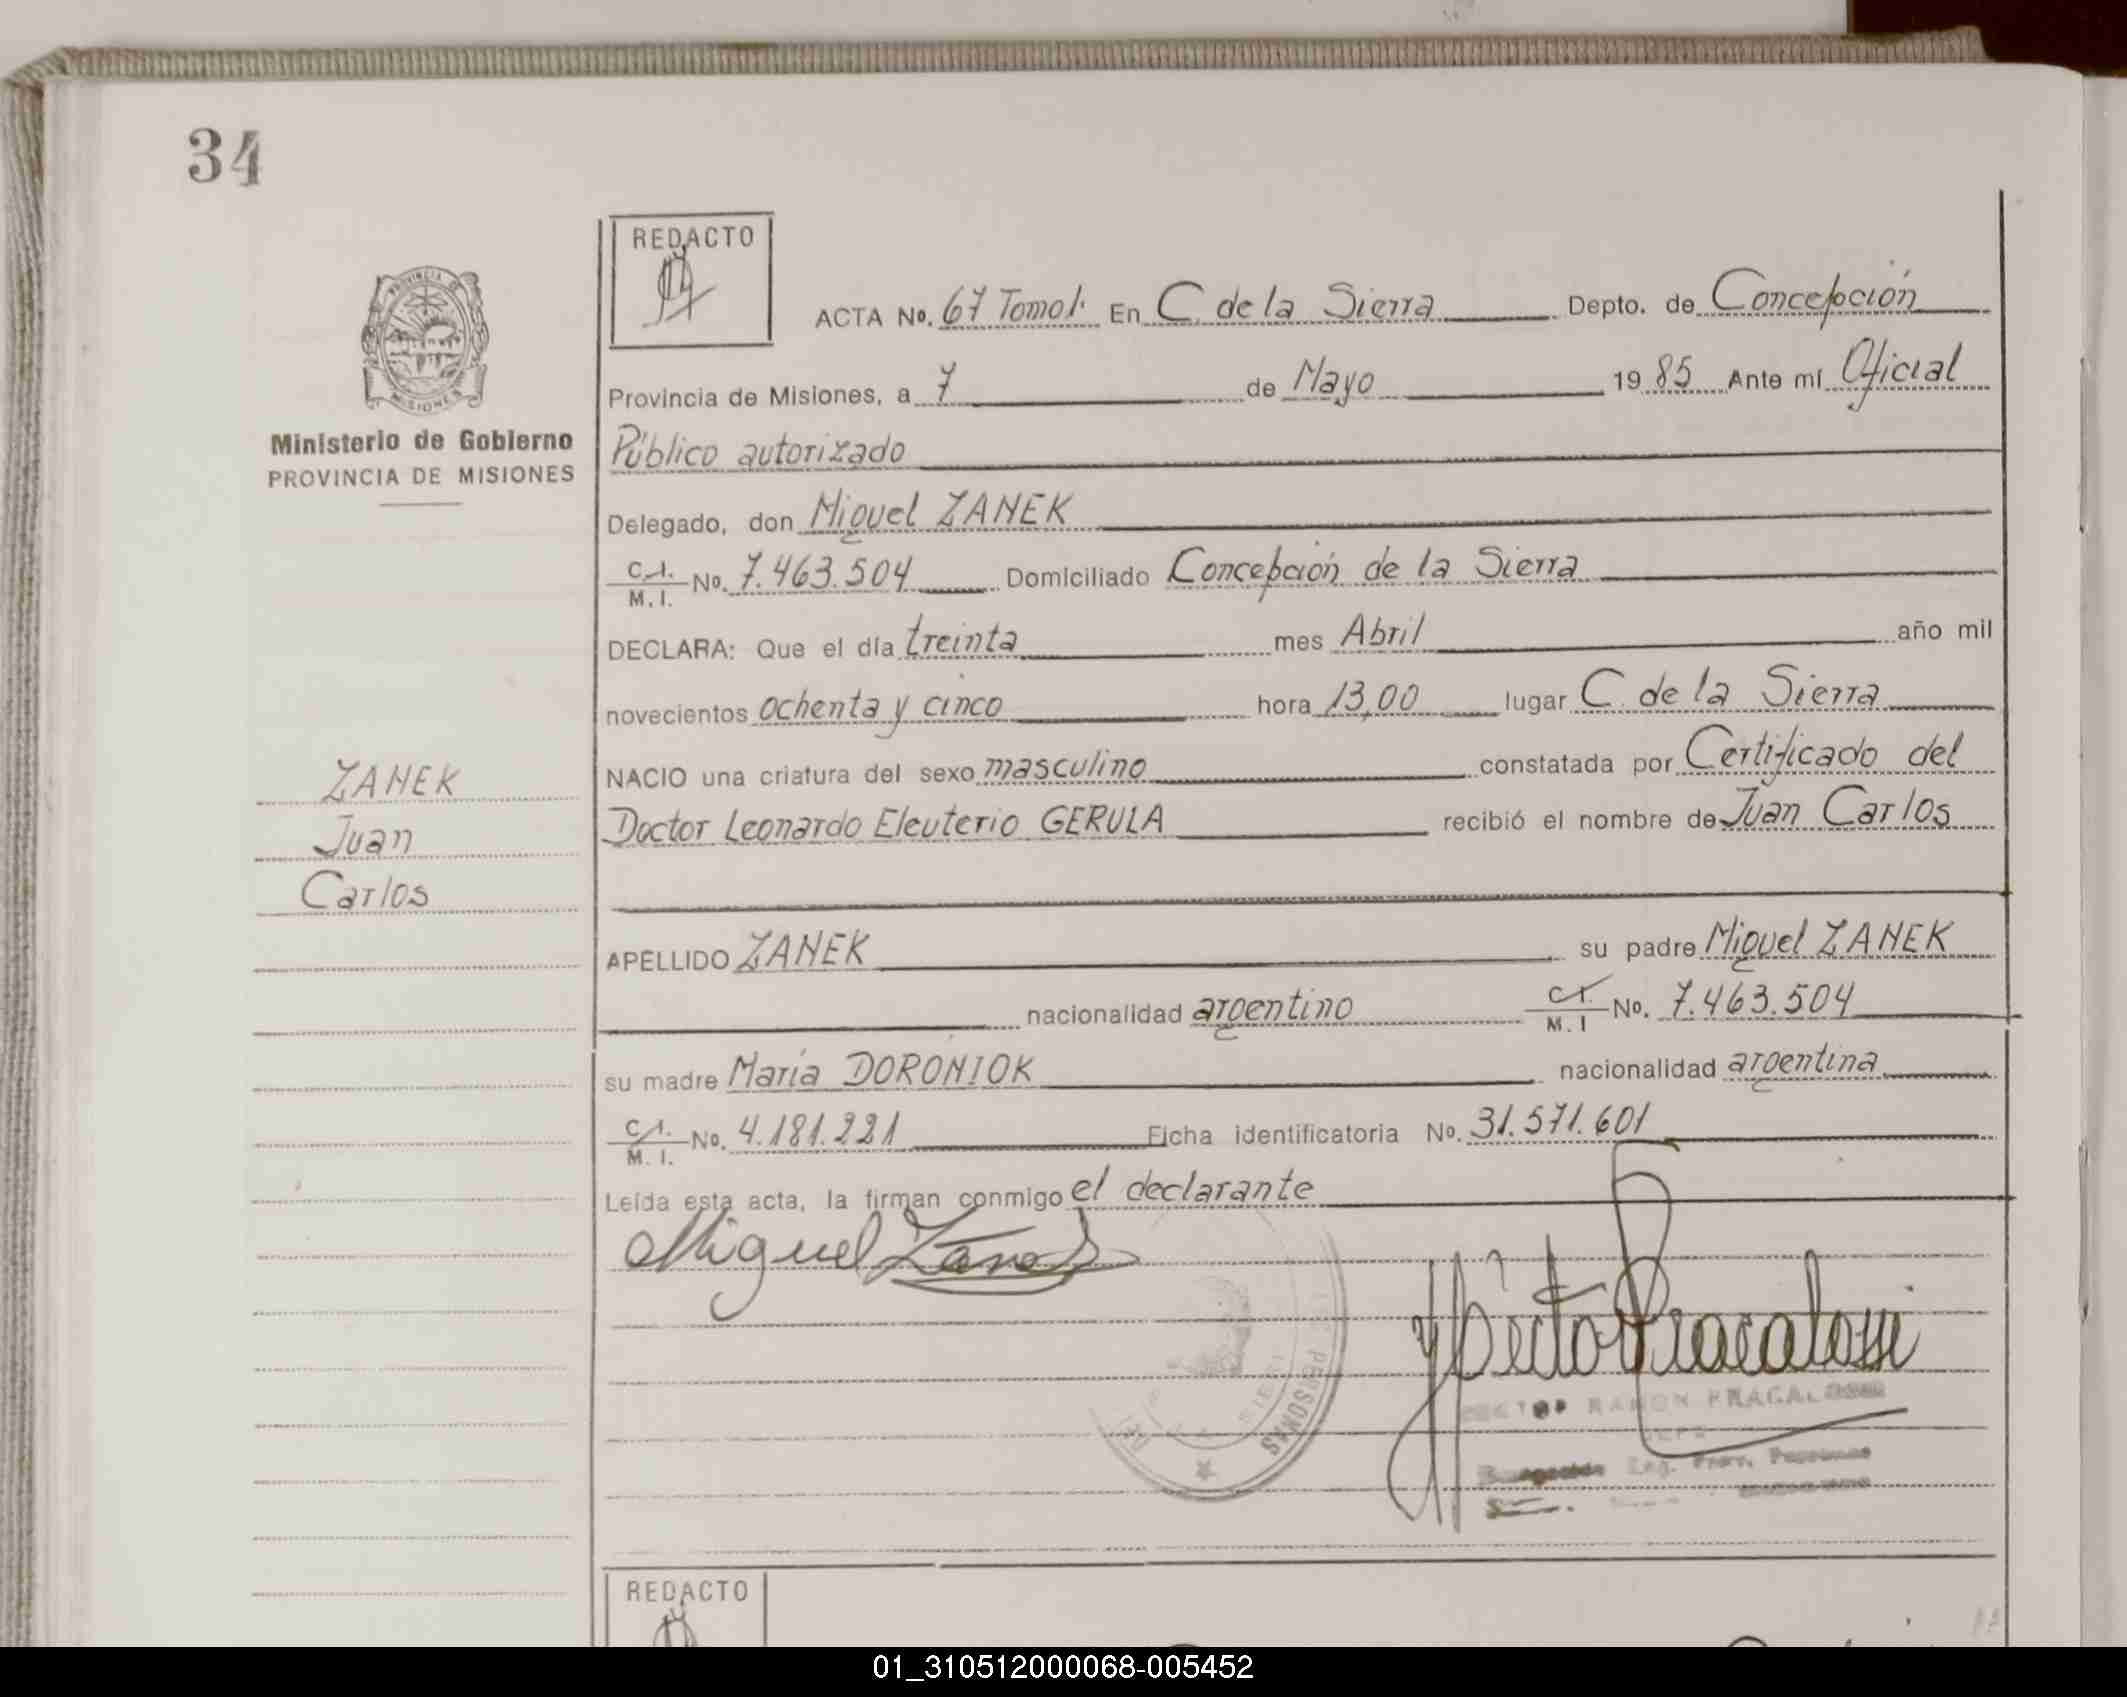 34
REDACTO
PROVINCIA DE
MISIONES
Ministerio de Gobierno
PROVINCIA DE MISIONES
ACTA No. 67 Tomo I. En C. de la Sierra Depto. de Concepción
Provincia de Misiones, a 7 de Mayo 1985 Ante mí Oficial
Público autorizado
Delegado, don Miguel ZANEK
C.I. M.I. No. 7.463.504 Domiciliado Concepción de la Sierra
DECLARA: Que el día treinta mes Abril año mil
novecientos ochenta y cinco hora 13,00 lugar C. de la Sierra
NACIO una criatura del sexo masculino constatada por Certificado del
Doctor Leonardo Eleuterio GERULA recibió el nombre de Juan Carlos
ZANEK
Juan
Carlos
APELLIDO ZANEK su padre Miguel ZANEK
nacionalidad argentino C.I. M.I No. 7.463.504
su madre María DORONIOK nacionalidad argentina
C.I. M.I. No. 4.181.221 Ficha identificatoria No. 31.571.601
Leída esta acta, la firman conmigo el declarante
Miguel Zanek
PERSONAS
RAMON
REDACTO
01_310512000068-005452